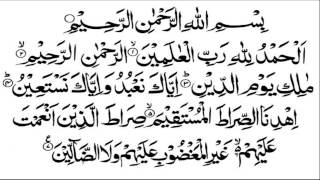 بِسْمِ اللهِ الرَّحْمٰنِ الرَّحِيْمِ
اَلْحَمْدُ لِلهِ رَبِّ الْعٰلَمِيْنَ ۙ۱ الرَّحْمٰنِ الرَّحِيْمِ ۙ۲
مٰلِكِ يَوْمِ الدِّيْنِ ۳ اِيَّاكَ نَعْبُدُ وَاِيَّاكَ نَسْتَعِيْنُ ۴
اِهْدِنَا الصِّرَاطَ الْمُسْتَقِيْمَ ۙ۵ صِرَاطَ الَّذِيْنَ اَنْعَمْتَ
عَلَيْهِمْ ۙ۶ غَيْرِ الْمَغْضُوْبِ عَلَيْهِمْ وَلَا الضَّآلِّيْنَ ۷